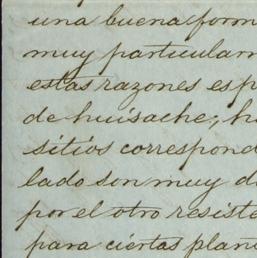 una buena form
muy particularm
estas razones esp
de huisache, ha
sitios correspond
lado son muy d
por el otro resiste
para ciertas plan